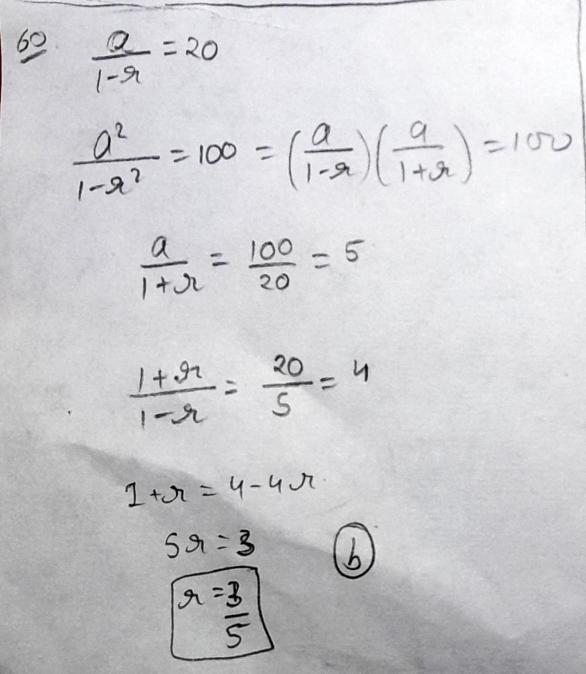 60 a/(1-r) = 20
a²/(1-r²) = 100 = (a/(1-r))(a/(1+r)) = 100
a/(1+r) = 100/20 = 5
(1+r)/(1-r) = 20/5 = 4
1+r = 4-4r
5r = 3
(b)
r = 3/5